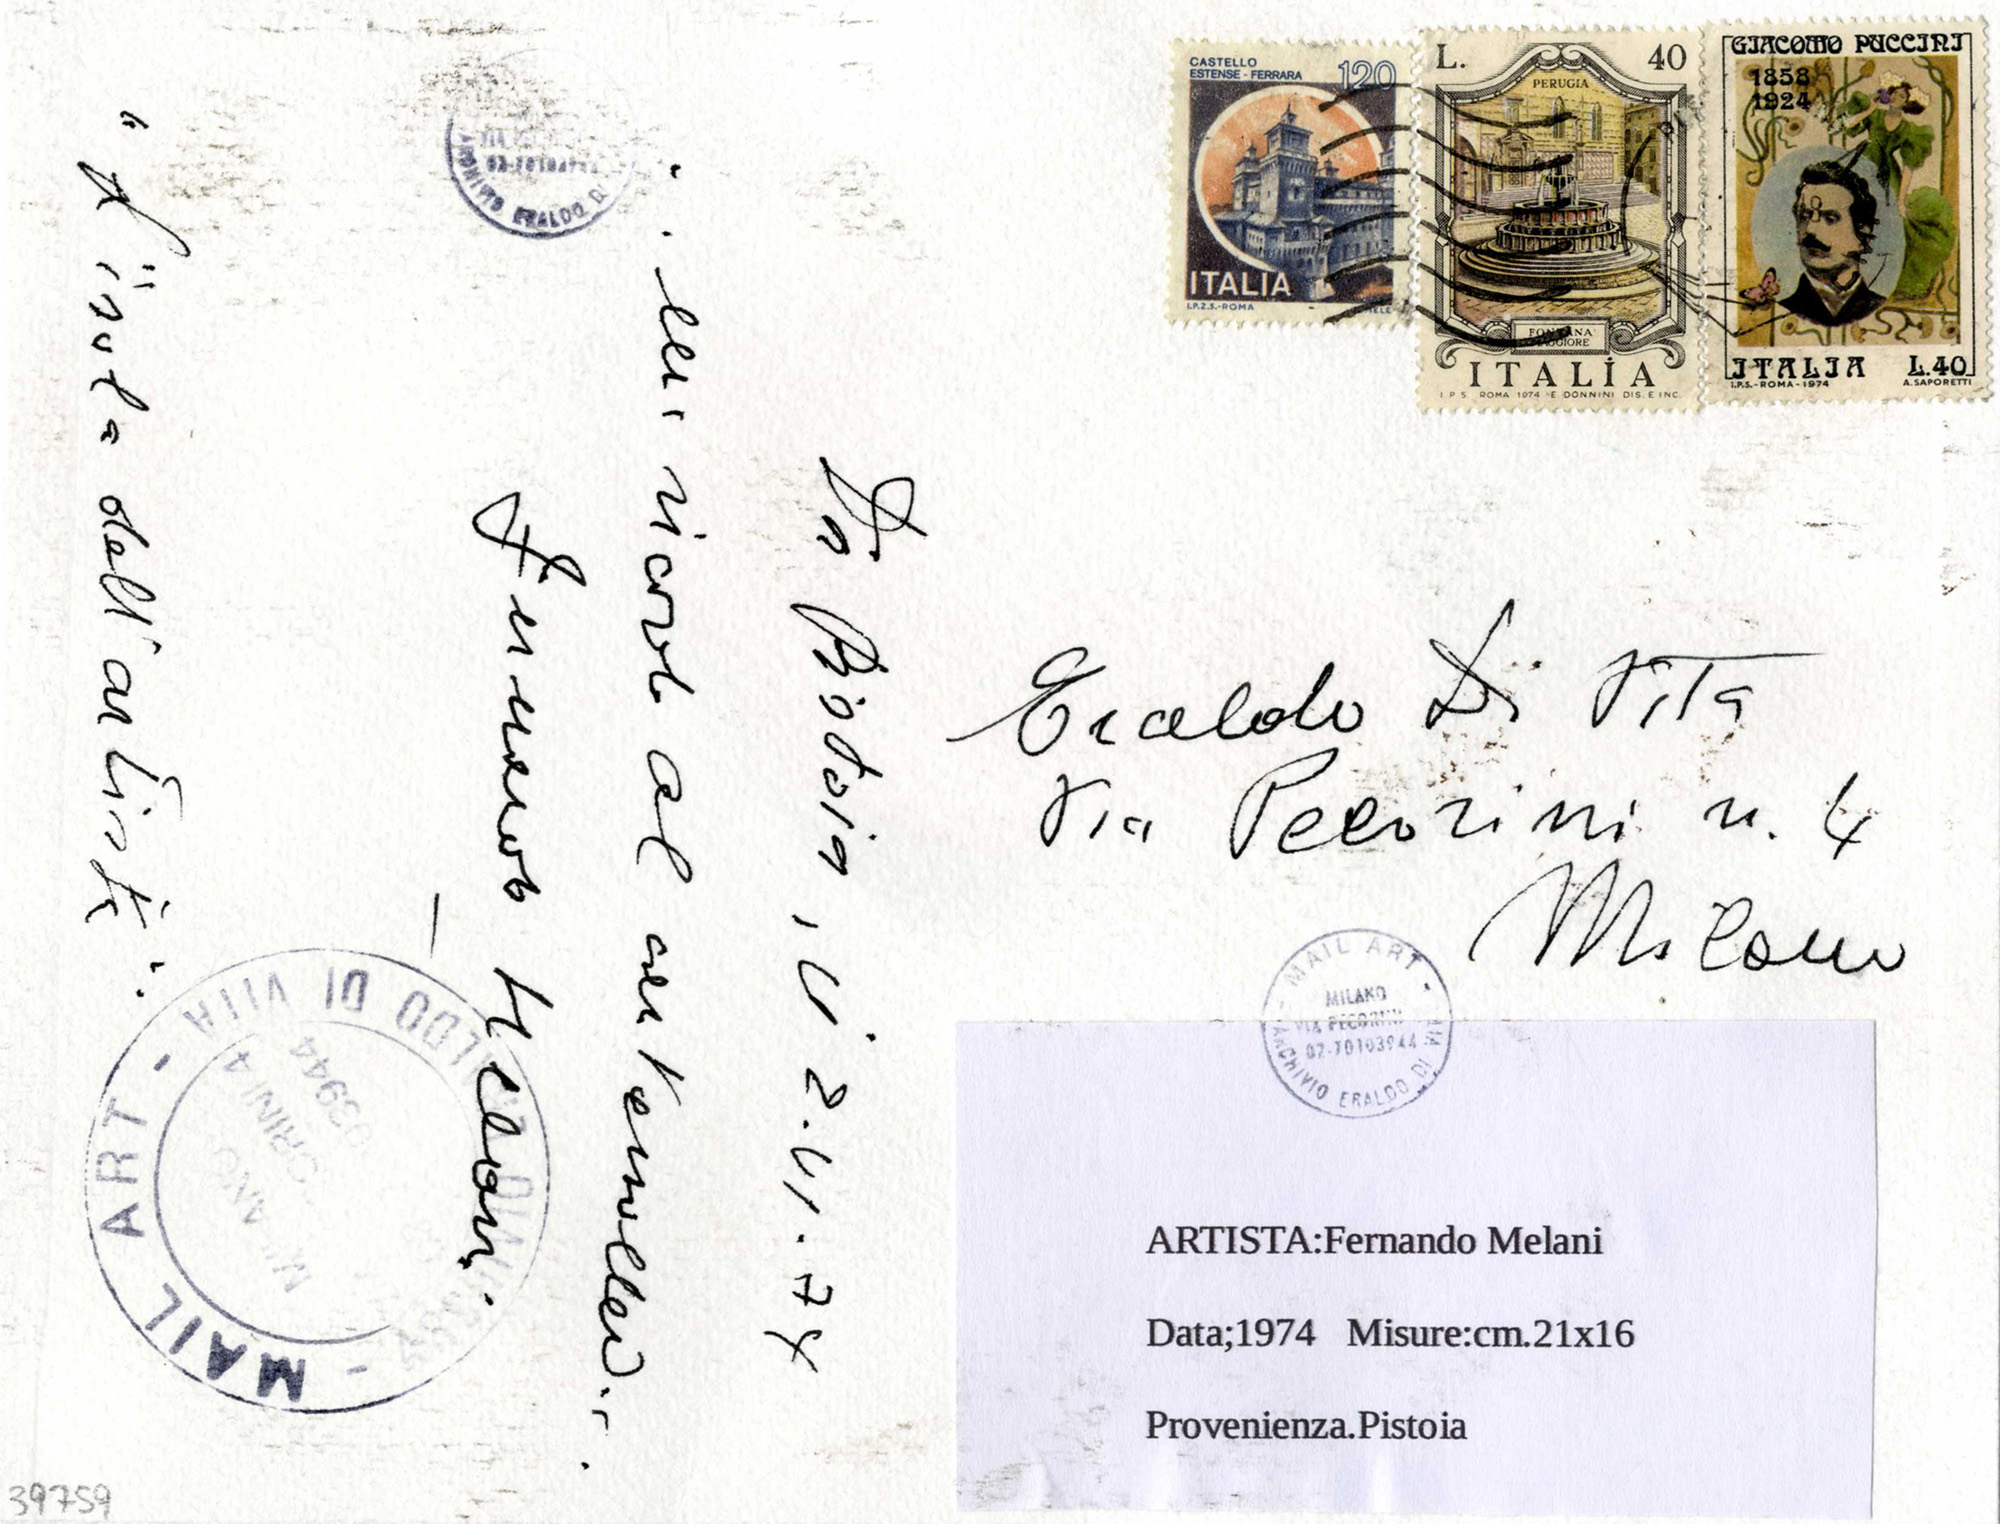 CASTELLO
ESTENSE - FERRARA
120
ITALIA
I.P.Z.S.-ROMA
L. 40
PERUGIA
FONTANA
MAGGIORE
ITALIA
I.P.S. ROMA 1974 E DONNINI DIS. E INC.
GIACOMO PUCCINI
1858
1924
ITALIA L.40
I.P.S.-ROMA-1974 A. SAPORETTI
Eraldo Di Vita
Via Pecorini n. 4
Milano
Da Pistoia, li 2.
un ricordo al
Fernando Melani
"L'isola dell'artista"
ERALDO DI
MAIL ART - ALDO DI VITA
MILANO
ORINI 4
03944
- MAIL ART -
MILANO
VIA PECORINI
02-70103944
ARCHIVIO ERALDO DI
ARTISTA:Fernando Melani
Data;1974 Misure:cm.21x16
Provenienza.Pistoia
39759